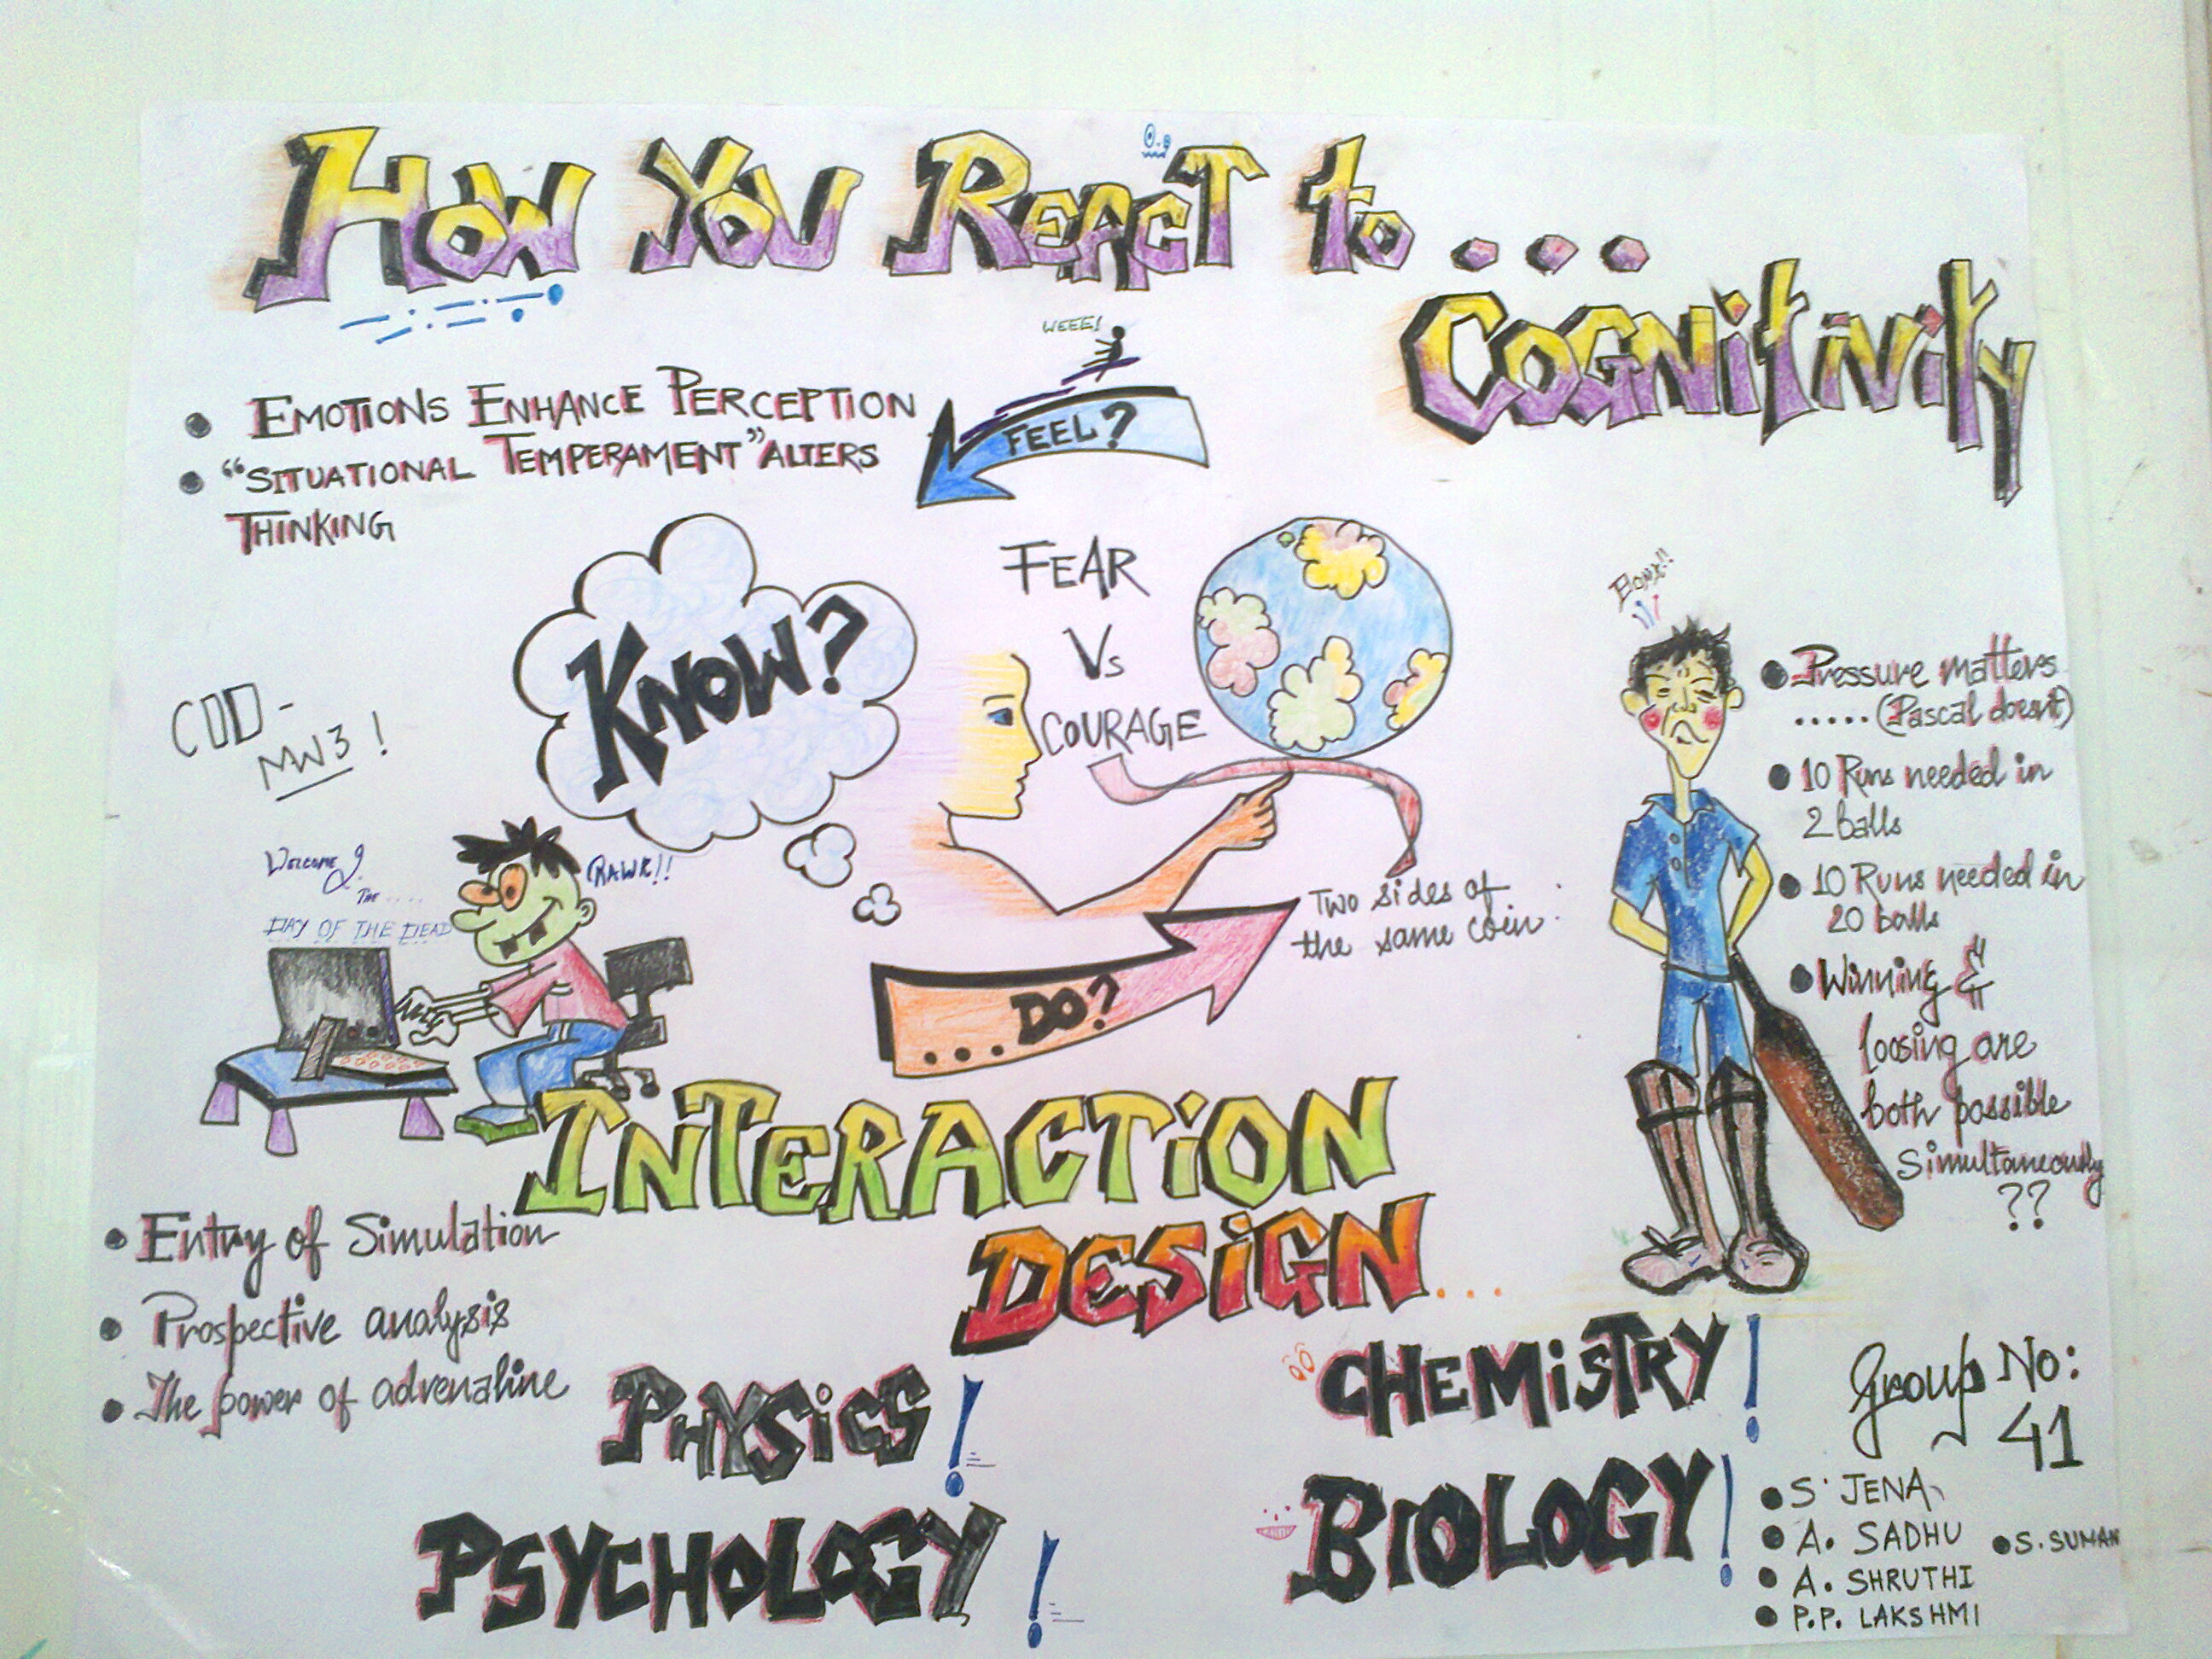 HOW YOU REACT to...
COGNITIVITY
WEEE!
FEEL?
• EMOTIONS ENHANCE PERCEPTION
• "SITUATIONAL TEMPERAMENT" ALTERS
THINKING
KNOW?
FEAR
Vs
COURAGE
COD-
MW3!
Welcome
The ....
DAY OF THE DEAD
RAWR!!
Two sides of
the same coin.
...DO?
Bonk!!
• Pressure matters
..... (Pascal doesnt)
• 10 Runs needed in
2 balls
• 10 Runs needed in
20 balls
• Winning &
loosing are
both possible
simultaneously
??
INTERACTION
DESIGN...
• Entry of Simulation
• Prospective analysis
• The power of adrenaline
PHYSICS!
CHEMISTRY!
PSYCHOLOGY!
BIOLOGY!
Group No:
41
• S. JENA
• A. SADHU
• S. SUMAN
• A. SHRUTHI
• P.P. LAKSHMI